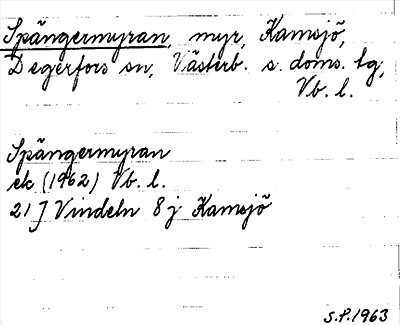 Spångermyran, myr, Kamsjö,
Degerfors sn, Västerb. s. doms. tg,
Vb. l.
Spångermyran
ek (1962) Vb. l.
21 J Vindeln 8 j Kamsjö
S.P. 1963